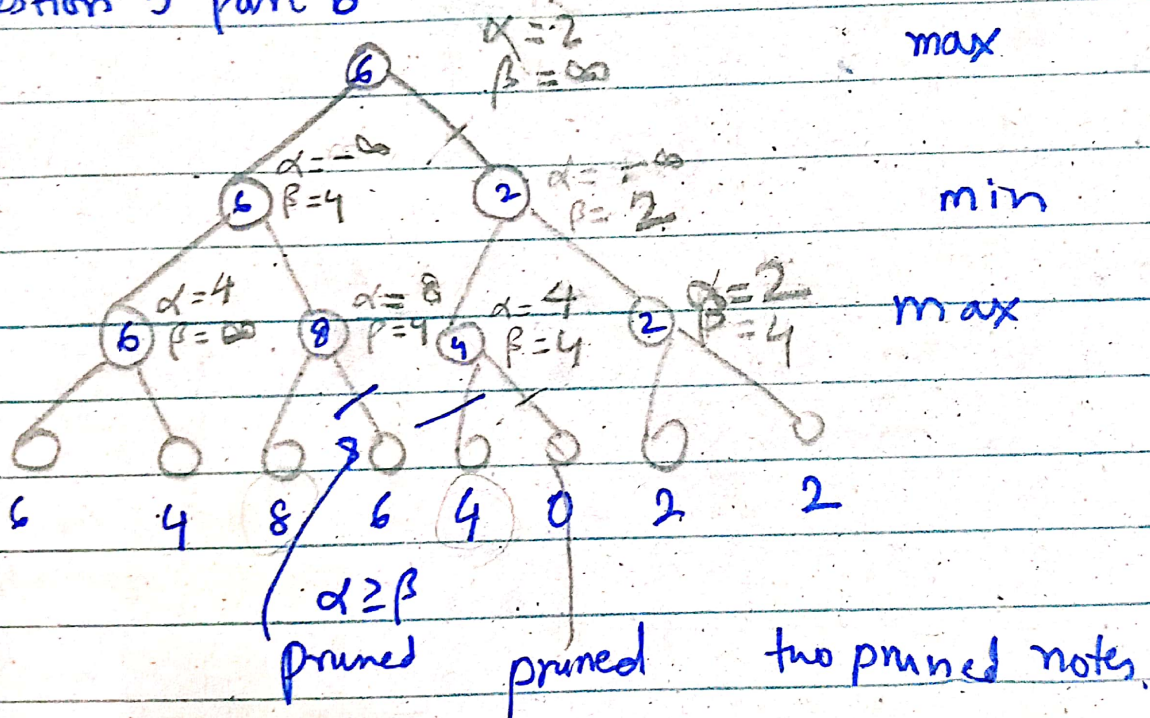 part b
α = 2
max
β = ∞
6
α = -∞
β = 4
6
2
α = -∞
β = 2
min
α = 4
β = ∞
6
α = 8
β = 4
8
α = 4
β = 4
4
α = 2
β = 4
2
max
8
6 4 8 6 4 0 2 2
α ≥ β
pruned pruned two pruned notes.